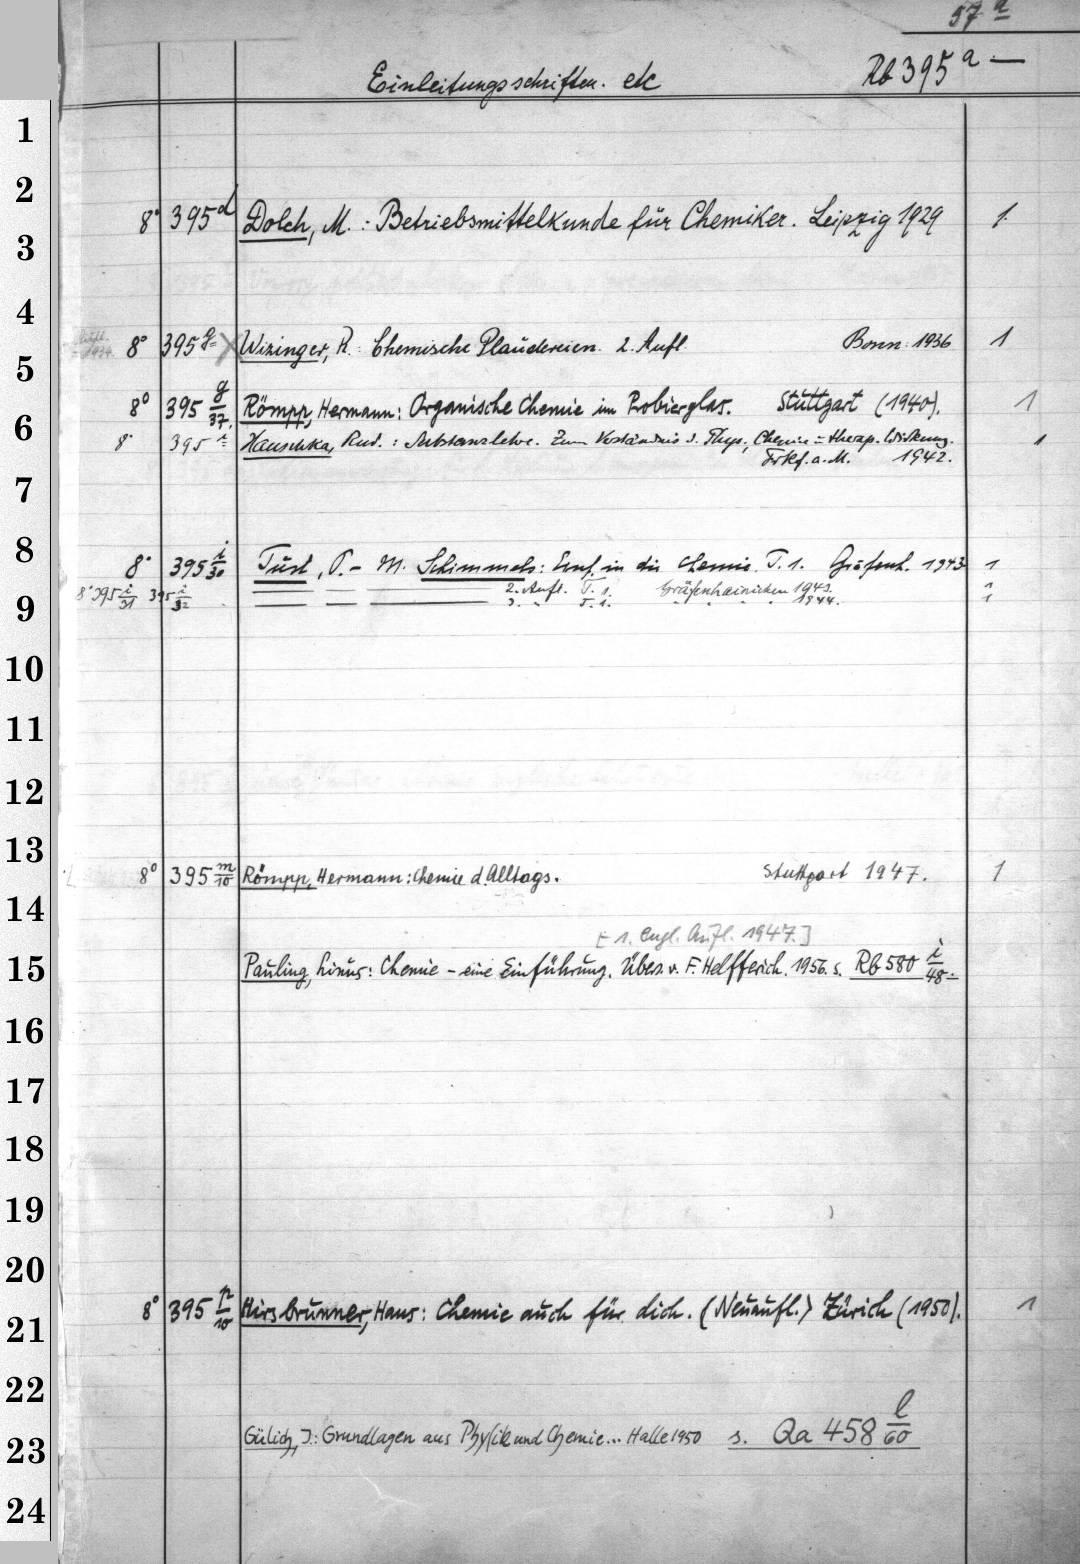 57 a
Einleitungsschriften. etc Rb 395 a —
1
2
8° 395 d Dolch, M.: Betriebsmittelkunde für Chemiker. Leipzig 1929 1
3
4
8° 395 g= Wizinger, R.: Chemische Plaudereien. 2. Aufl. Bonn 1936 1
5
8° 395 g/37. Römpp, Hermann: Organische Chemie im Probierglas. Stuttgart (1940). 1
6
8° 395 i= Hauschka, Rud.: Substanzlehre. Zum Verständnis d. Phys., Chemie = therap. Wirkung.
Frkf. a. M. 1942. 1
7
8
8° 395 i/30 Tust, P. – M. Schimmels: Einf. in die Chemie. T. 1. Gräfenh. 1943 1
8° 395 i/31 2. Aufl. T. 1. Gräfenhainichen 1943. 1
395 i/32 3. " T. 1. " " 1944. 1
9
10
11
12
13
8° 395 m/10 Römpp, Hermann: Chemie d. Alltags. Stuttgart 1947. 1
14
[1. engl. Aufl. 1947.]
15 Pauling, Linus: Chemie – eine Einführung. Übers. v. F. Helfferich. 1956. s. Rb 580 i/48=
16
17
18
19
20
8° 395 p/10 Hirsbrunner, Hans: Chemie auch für dich. (Neuaufl.) Zürich (1950). 1
21
22
23 Gülich, J.: Grundlagen aus Physik und Chemie... Halle 1950 s. Qa 458 l/60
24